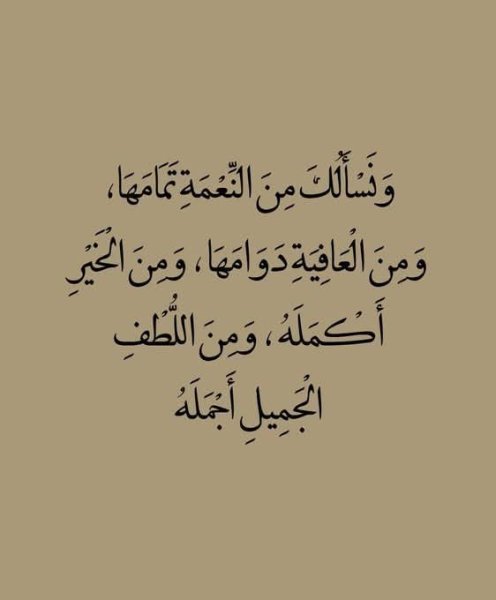 وَنَسْأَلُكَ مِنَ النِّعْمَةِ تَمَامَهَا،
وَمِنَ الْعَافِيَةِ دَوَامَهَا، وَمِنَ الْخَيْرِ
أَكْمَلَهُ، وَمِنَ اللُّطْفِ
الْجَمِيلِ أَجْمَلَهُ